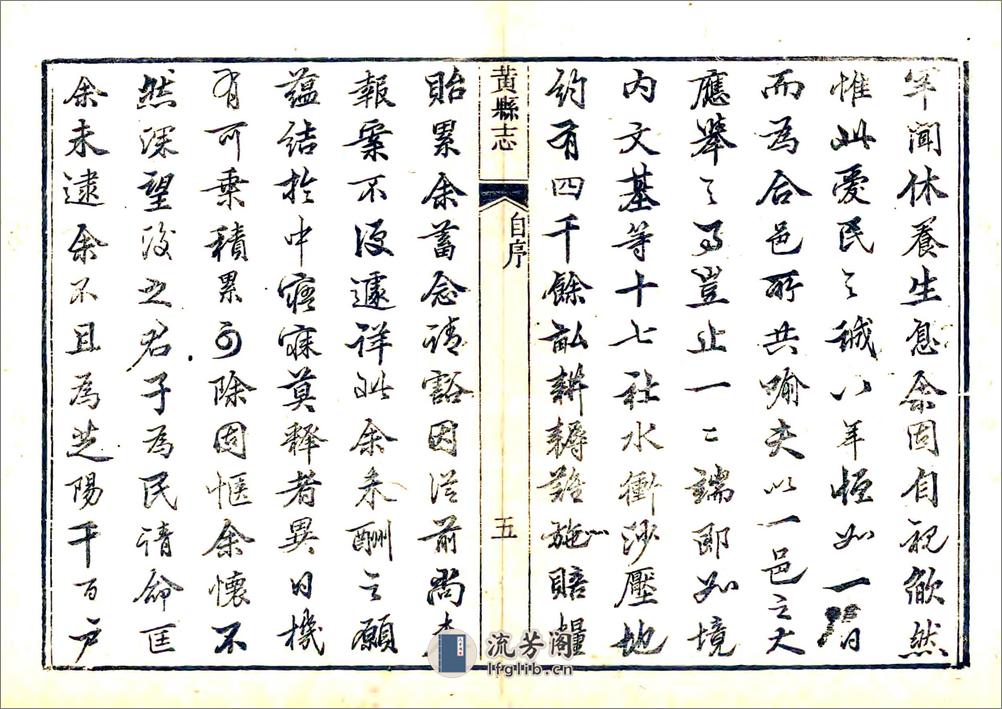 年聞休養生息余固自視欿然
惟此愛民之誠八年恒如一日
而為合邑所共喻夫以一邑之大
應舉之事豈止一二端即如境
內文基等十七社水衝沙壓地
約有四千餘畝耕耨難施賠糧
黃縣志
自序
五
貽累余蓄念請豁因從前尚未
報案不便遽詳此余未酬之願
蘊結於中寤寐莫釋者異日機
有可乘積累可除固愜余懷不
然深望後之君子為民請命匡
余未逮余不且為芝陽千百戶
流芳閣
lfglib.cn